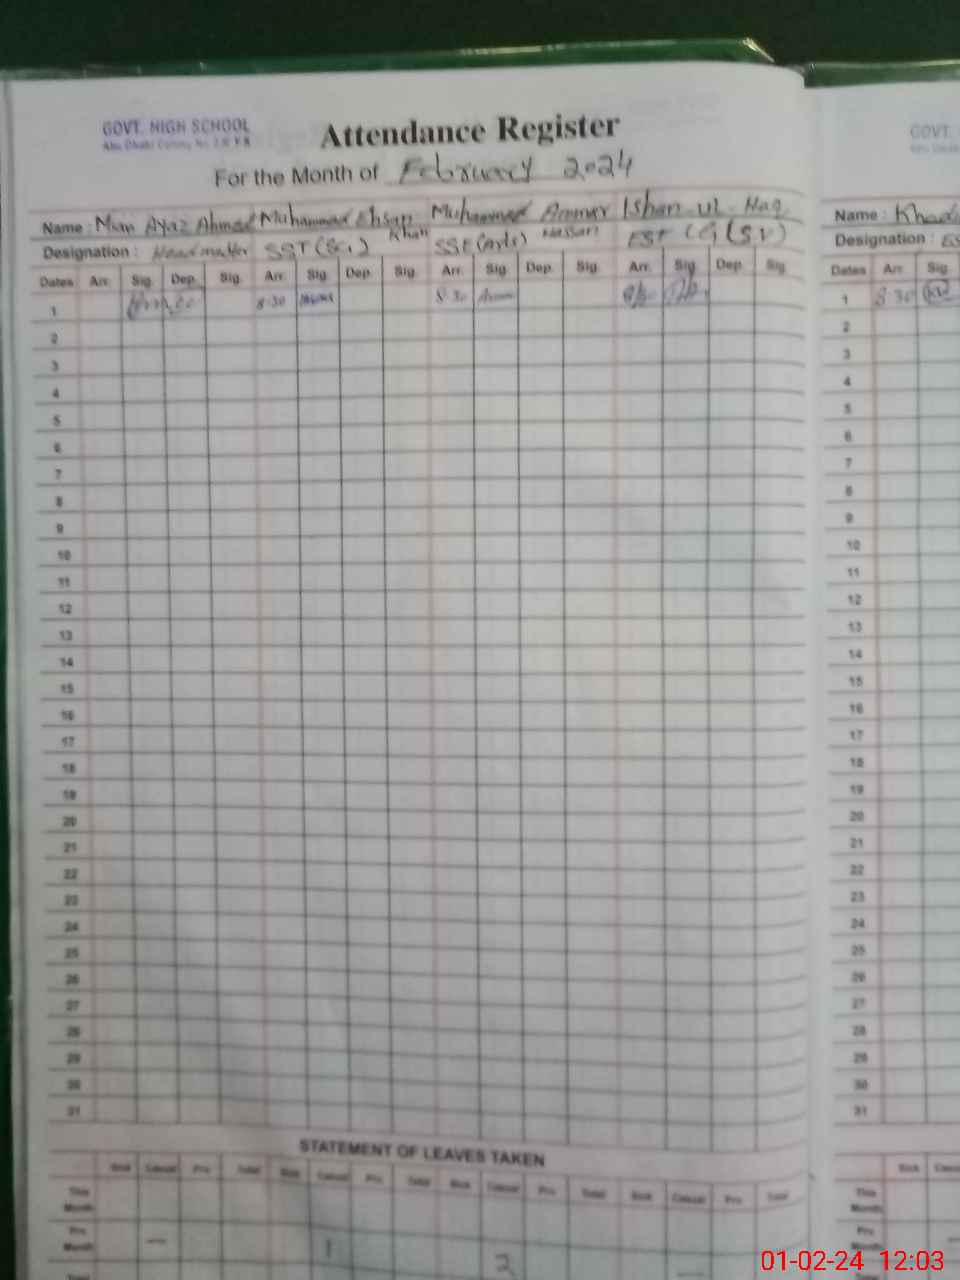 GOVT. HIGH SCHOOL
GOVT.
Abu Dhabi Colony No. 2 R Y K
Attendance Register
For the Month of February 2024
Name : Mian Ayaz Ahmad Muhammad Ehsan Khan Muhammad Ammar Hassan Ishan-ul-Haq
Name : Khad
Designation : Headmaster SST (Sci) SSE (Arts) EST
Designation : ES
Dates Arr. Sig. Dep. Sig. Arr. Sig. Dep. Sig. Arr. Sig. Dep. Sig. Arr. Sig. Dep. Sig.
Dates Arr. Sig.
1 8:30 8:30
1 8:30
2 2
3 3
4 4
5 5
6 6
7 7
8 8
9 9
10 10
11 11
12 12
13 13
14 14
15 15
16 16
17 17
18 18
19 19
20 20
21 21
22 22
23 23
24 24
25 25
26 26
27 27
28 28
29 29
30 30
31 31
STATEMENT OF LEAVES TAKEN
Sick Casual Prv Total Sick Casual Prv Total Sick Casual Prv Total Sick Casual Prv Total
Sick
This Month
This Month
Prv Month — 1 2 —
Prv Month
Total
01-02-24 12:03